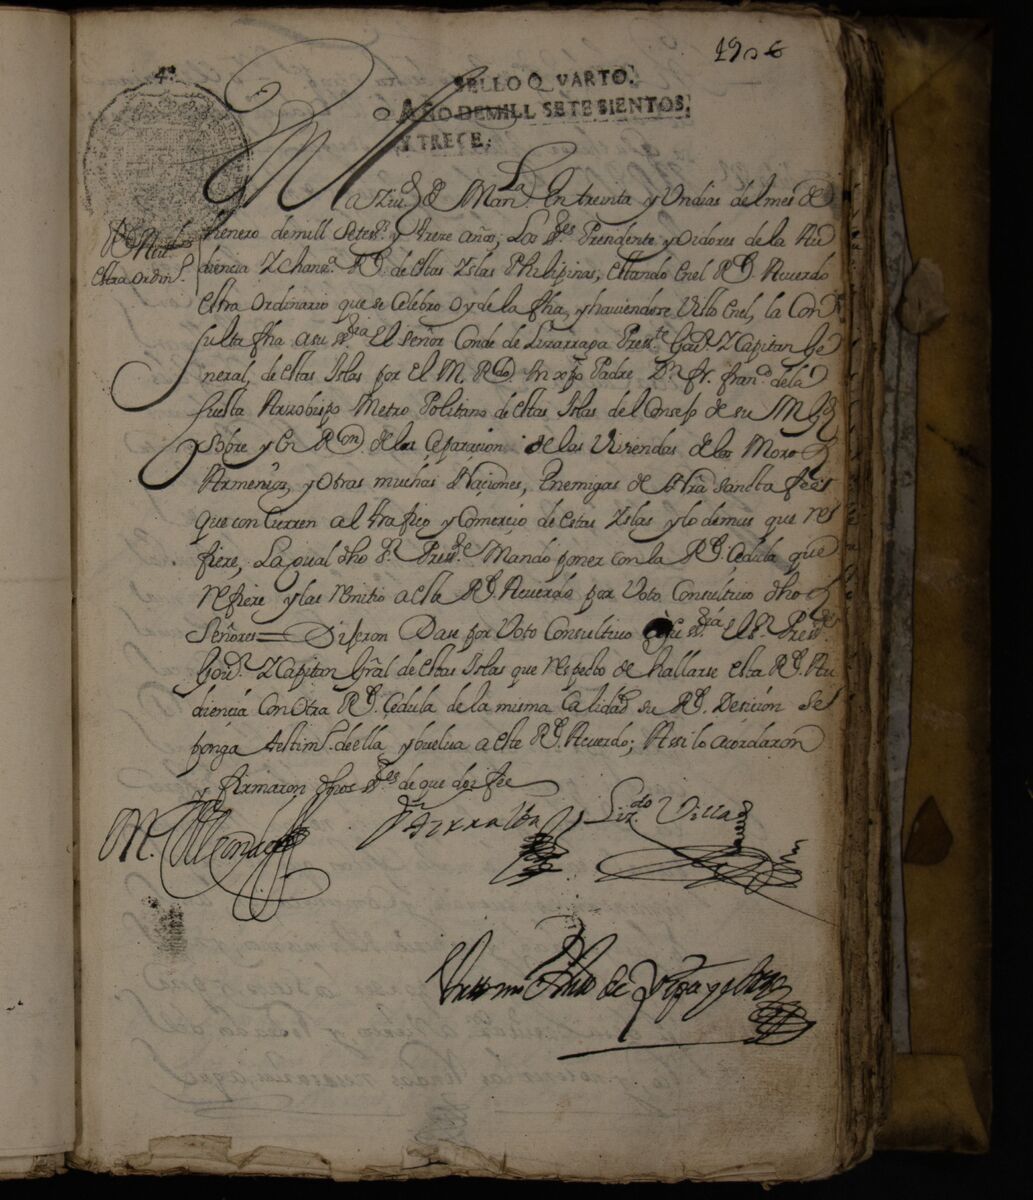 190
4º
SELLO QVARTO.
AÑO DE MILL SETE SIENTOS,
Y TRECE.
En la Ziud. de Man.la En treinta y Un dias del mes de
Henero de mill Seteз. y trese años; Los s.res Presidente y oidores de la Au
diencia Y chanz.a R.l de estas Yslas Philipinas, estando En el R.l Acuerdo
Extra Ordinario que se Celebro oy de la fha, y haviendose Visto En el, la Con
sulta fha a su s.ria El señor Conde de Lizarraga Press.te Gov.r Y Capitan Ge
neral, de estas Islas por El M. R.do In xpo Padre D.n fr. fran.co de la
Cuesta Arzobispo Metro Politano de estas Islas del Consejo de su M
y sobre y En R.on de la Ceparacion de las Viviendas de los Moros
Armenios, y otras muchas Naciones, Enemigas de Ntra sancta fee
que concurren al trafico y Comercio de estas Yslas y lo demas que re
fiere, La qual dho s.r Press.te Mando poner con la R.l Cedula que
refiere y las remitio a este R.l Acuerdo por Voto Consultivo dhos
Señores = Dixeron Dase por Voto Consultivo a su s.ria El s.r Press.te
Gov.r Y Capitan Gral de estas Islas que respecto de hallarse esta R.l Au
diencia Con otra R.l Cedula de la misma Calidad su R.l Desicion se
ponga testim.o de ella y buelva a este R.l Acuerdo; Asi lo acordaron
y firmaron dhos s.res de que doy fee
Extra ordin.o
Torralba
Liz.do Villa